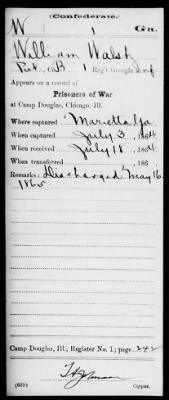 (Confederate.)
W 1 Ga.
William Walsh
Pvt, Co. B 1 Reg't Georgia Inf
Appears on a record of
Prisoners of War
at Camp Douglas, Chicago, Ill.
Where captured Marietta Ga
When captured July 3, 1864
When received July 18, 1864
When transferred , 186 .
Remarks: Discharged May 16
1865
Camp Douglas, Ill., Register No. 1; page 242
Copyist.